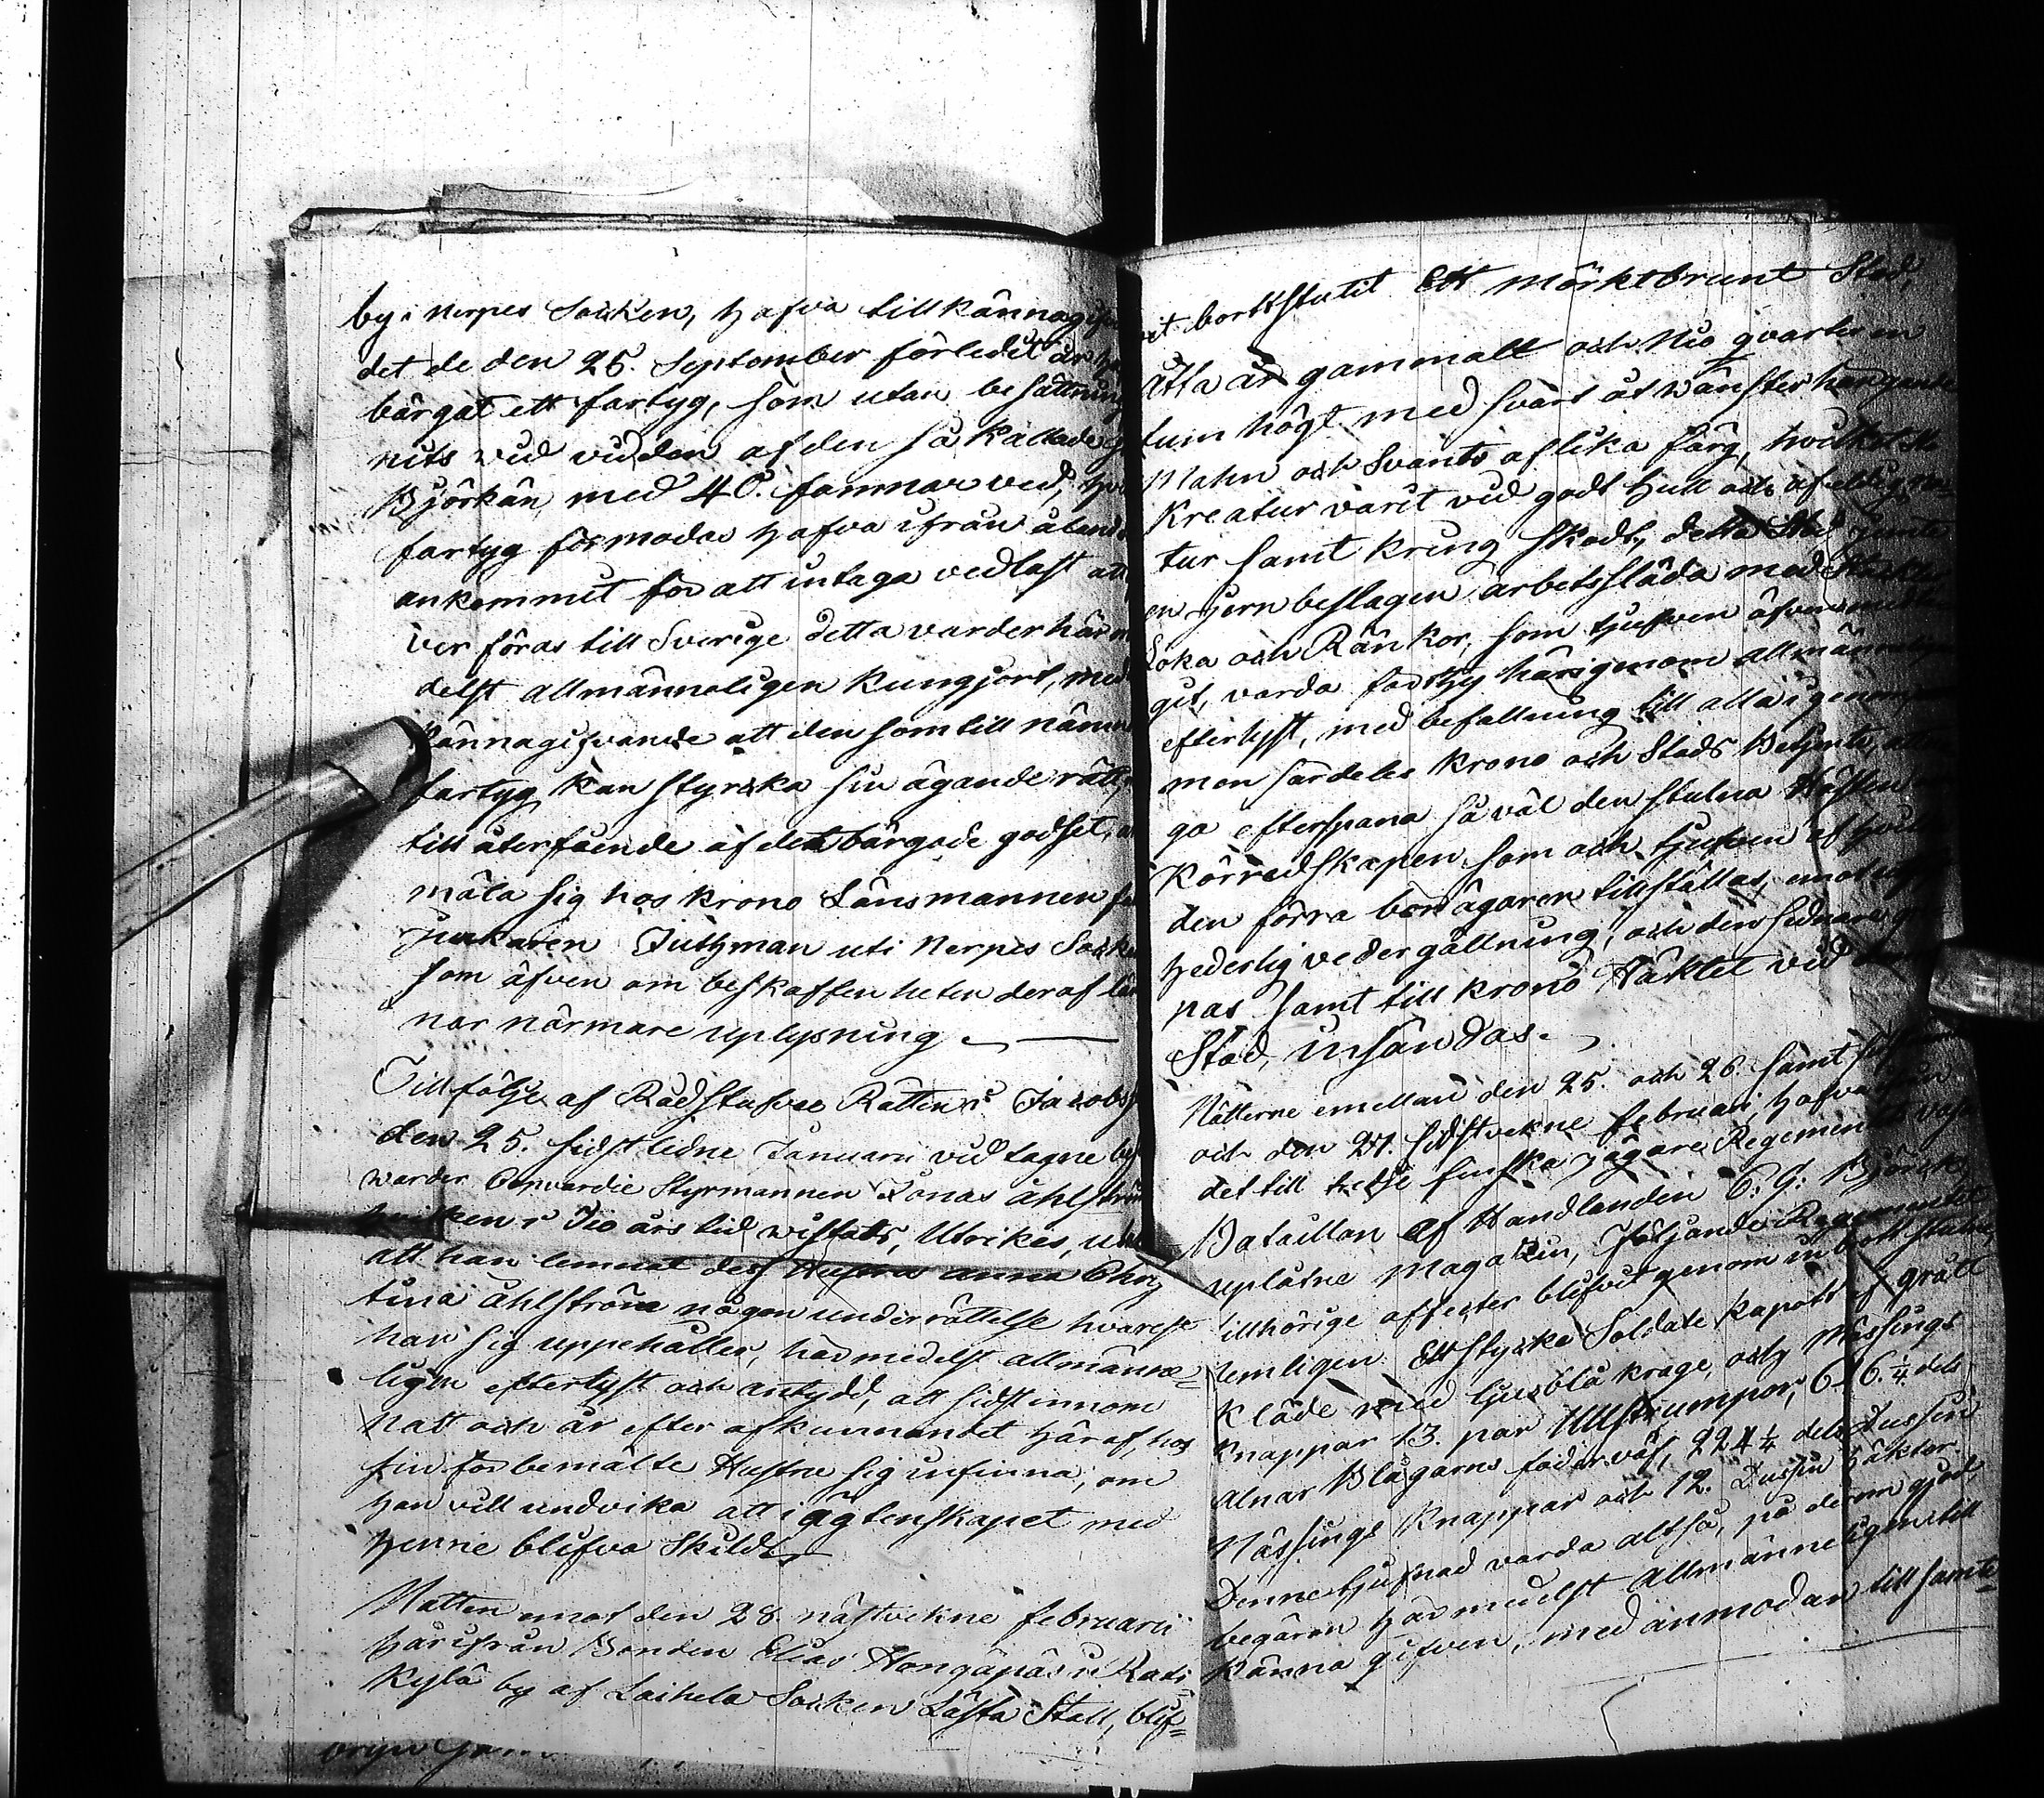 by i Nerpes Socken, hafva tillkännagif
det de den 25. September förledit år
bärgat ett fartyg, som utan besättning
nits vid udden af den så kallade
Björkön, med 40. famnar ved,
fartyg förmodas hafva ifrån åland
ankommit för att intaga vedlast
ver föras till Sverige detta varder här
delst allmänneligen kungjort, med
kännagifvande att den som till näm
fartyg kan styrcka sin ägande rätt
till återfående af det bärgade godset,
mäla sig hos krono Länsmannen
junkaren Juthman uti Nerpes Socken
som äfven om beskaffenheten deraf
nar närmare uplysning.
Till följe af Rådstufvu Rättens i Jacobs
den 25. sidstledne Januarii vidtagne
warder Coopvardie Styrmannen Jonas åhlström
hvilken i Tio års tid wistats, Utrikes, utan
att han lemnat dess Hustru Anna Chris
tina åhlström någon underrättelse hvarest
han sig uppehåller, härmedelst allmänne=
ligen efterlyst och antydd, att sidst innom
natt och år efter afkunnandet häraf, hos
sin förbemälte Hustru sig infinna, om
han vill undvika att i ägtenskapet med
henne blifva Skild.
Natten emot den 28. nästvekne februarii
härifrån Bonden Elias Hangäpäs i Rati
kylä by af Laihela Socken Låsta Stall, blif=
it bortstulit Ett mörkbrunt Stod,
åtta år gammalt och Nio qvarter en
tum högt med svart åt vänster hängande
Mahn och Svants af lika färg, hvilket
kreatur varit vid godt hull och af eldig na
tur samt kring skodt, detta Stod jemte
en jern beslagen arbetssläda med
Loka och Ränkor, som tjufven äfven med
git, varda forthy härigenom allmänneligen
efterlyst, med befallning till alla i gemen,
men särdeles krono och Stads Betjente, att
ga efterspana så väl den stulna Hästen
Körredskapen som och tjufven af hvilka
den förra bör ägaren tillställas, emot
hederlig vedergällning, och den sednare
pas samt till krono Häktet vid denna
Stad, insändas.
Nätterne emellan den 25. och 26. samt
och den 27. sidstvekne februari, hafva
det till tredje finska Jägare Regementets
Bataillon af Handlanden C: G: Björck
uplåtne Magazin, följande Regementet
tillhörige effecter blifvit genom inbrott stulne,
nemligen Ett stycke Soldate kapott af grått
Kläde med ljusblå krage, och Mässings
knappar 13. par Ullstrumpor, 616. 1/4 dels
alnar Blågarns foder väf, 224 1/4 dels Dussin
Mässings knappar och 12. Dussin häktor.
Denne tjufnad varda altså, på derom gjord
begäran härmedelst Allmänneligen till
känna gifven, med anmodan till samte=